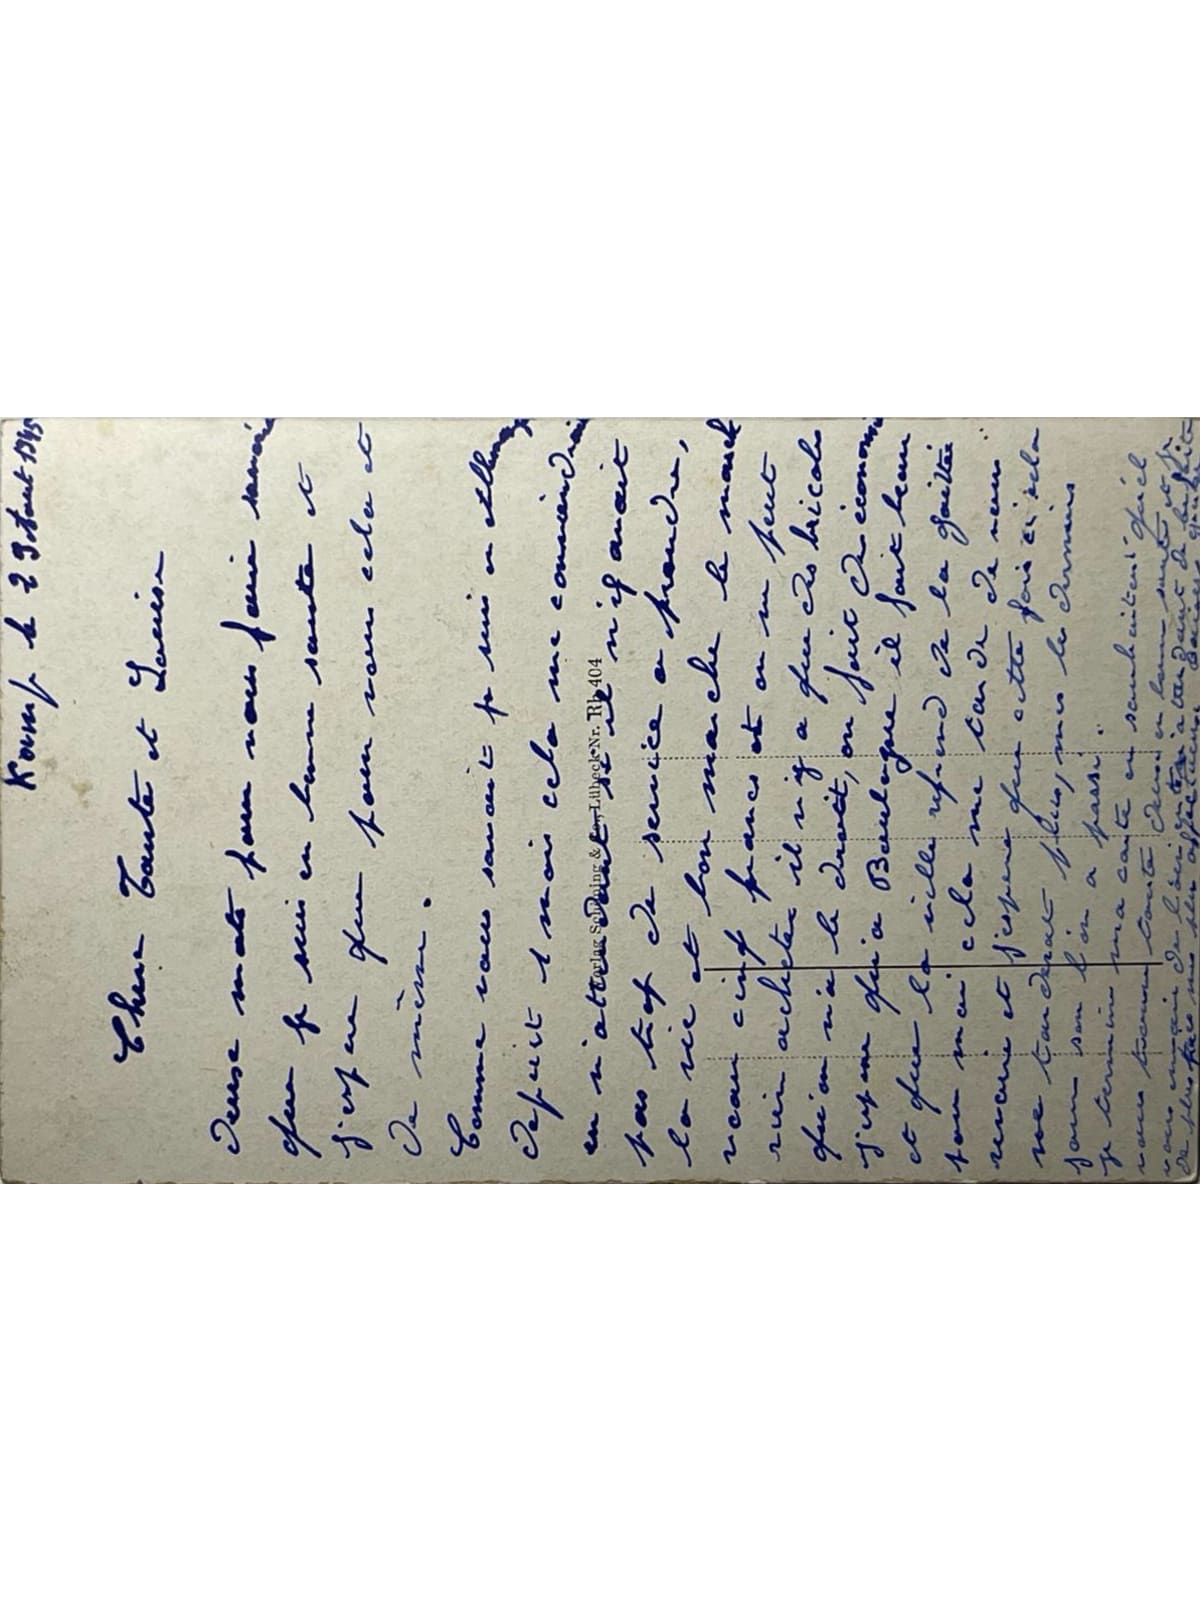 Kamp le 23 Aout 1945
Chere Tante et Louise
Deux mots pour vous faire savoir
que je suis en bonne sante et
j'espere que pour vous cela et
de mème.
Comme vous savait je suis en Allemag
depuit 1 mois cela me conviendrai
en n'attendant si il n'y avait
pas trop de service a prendre,
la vie et bon marche le mark
vau cinq francs et on ne peut
rien acheter il n'y a que des bricoles
qu'on n'a le droit, on fait des économi
j'espere qu'a Boulogne il fait beau
et que la ville reprend de la gaîtée
pour moi cela me tarde de vous
revenir et j'espere que cette fois ci cela
ne tarderat plus, mes les derniers
jours son l'on a passé.
je termine ma carte en souhaitant qu'el
vous trouve toute deux en bonne sante et
Verlag Schöning & Co., Lübeck Nr. Rh 404